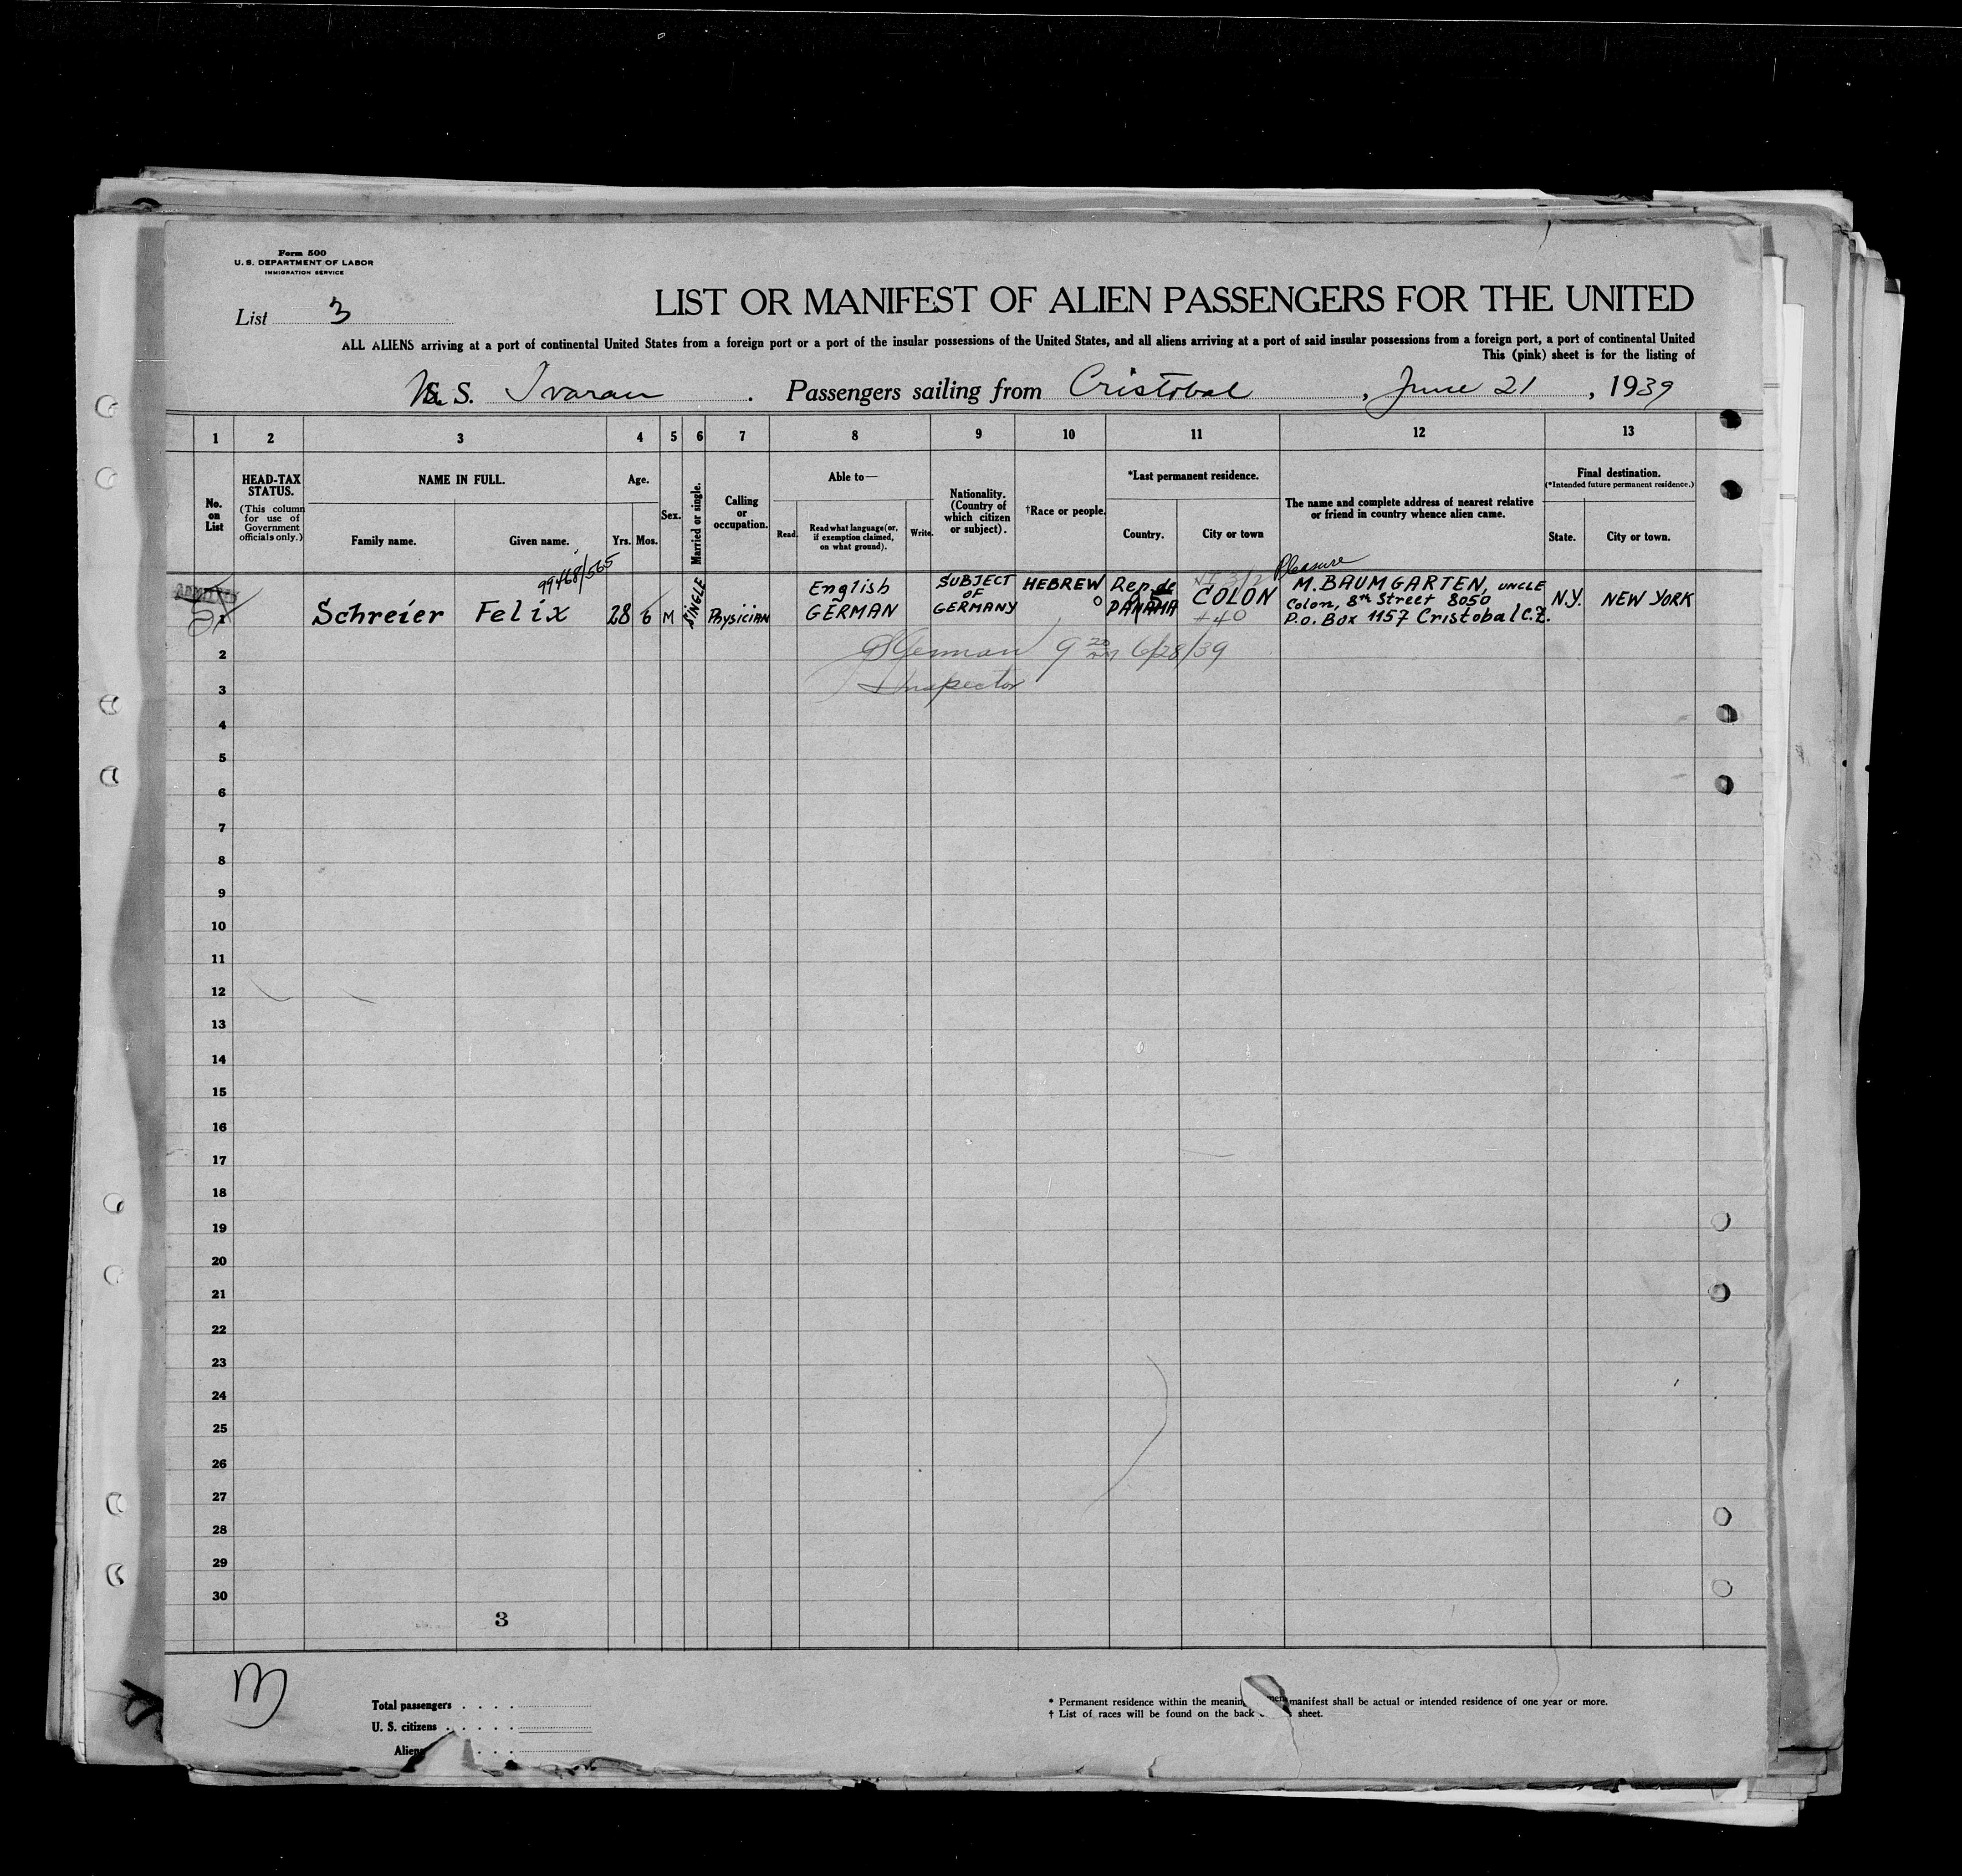 Form 500
U. S. DEPARTMENT OF LABOR
IMMIGRATION SERVICE
List 3
LIST OR MANIFEST OF ALIEN PASSENGERS FOR THE UNITED
ALL ALIENS arriving at a port of continental United States from a foreign port or a port of the insular possessions of the United States, and all aliens arriving at a port of said insular possessions from a foreign port, a port of continental United
This (pink) sheet is for the listing of
S. Ivaran . Passengers sailing from Cristobal , June 21 , 1939
1 2 3 4 5 6 7 8 9 10 11 12 13
No. on List
HEAD-TAX STATUS.
(This column for use of Government officials only.)
NAME IN FULL.
Family name. Given name.
Age.
Yrs. Mos.
Sex.
Married or single.
Calling or occupation.
Able to—
Read.
Read what language (or, if exemption claimed, on what ground).
Write.
Nationality. (Country of which citizen or subject).
†Race or people.
*Last permanent residence.
Country. City or town
The name and complete address of nearest relative or friend in country whence alien came.
Final destination.
(*Intended future permanent residence.)
State. City or town.
99468/565
Pleasure
ADMITTED
1 Schreier Felix 28 6 M SINGLE Physician English GERMAN SUBJECT OF GERMANY HEBREW Rep. de PANAMA COLON M. BAUMGARTEN, UNCLE
Colon, 8th Street 8050
P.O. Box 1157 Cristobal C.Z.
N.Y. NEW YORK
#40
2 9 20 AM 6/28/39
3 Inspector
4
5
6
7
8
9
10
11
12
13
14
15
16
17
18
19
20
21
22
23
24
25
26
27
28
29
30
3
Total passengers
U. S. citizens
Aliens
* Permanent residence within the meaning manifest shall be actual or intended residence of one year or more.
† List of races will be found on the back sheet.